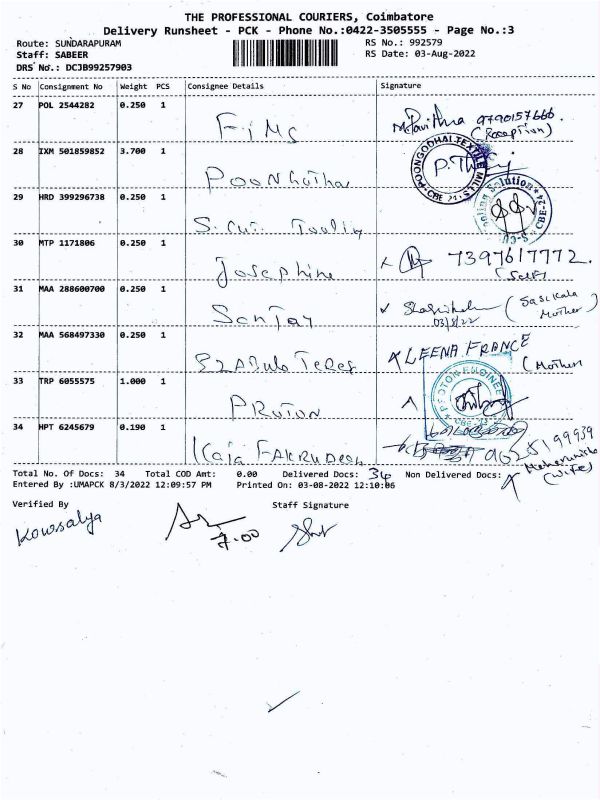 THE PROFESSIONAL COURIERS, Coimbatore
Delivery Runsheet - PCK - Phone No.:0422-3505555 - Page No.:3
Route: SUNDARAPURAM RS No.: 992579
Staff: SABEER RS Date: 03-Aug-2022
DRS No.: DCJB99257903
S No Consignment No Weight PCS Consignee Details Signature
27 POL 2544282 0.250 1 Fims M.Pavithra 9790157666.
(Reception)
28 IXM 501859852 3.700 1 POONGOTHAI TEXTILE MILLS CBE
29 HRD 399296738 0.250 1 CBE-24
30 MTP 1171806 0.250 1 Josephine 7397617772.
(Self)
31 MAA 288600700 0.250 1 Sanjay (Sasikala
03/8/22 Mother)
32 MAA 568497330 0.250 1 LEENA FRANCE
(Mother)
33 TRP 6055575 1.000 1 PROTON PROTON ENGINEE
34 HPT 6245679 0.190 1 Kaja FAKRUDEEN
(Wife)
Total No. Of Docs: 34 Total COD Amt: 0.00 Delivered Docs: 34 Non Delivered Docs:
Entered By :UMAPCK 8/3/2022 12:09:57 PM Printed On: 03-08-2022 12:10:06
Verified By Staff Signature
Kowsalya
7.00